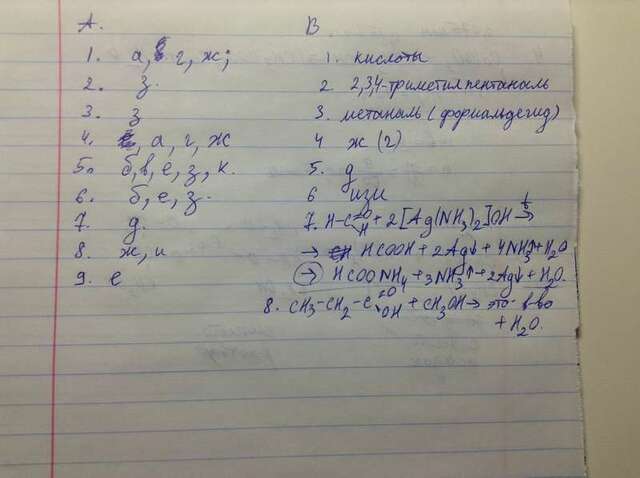 А.
1. а, в г, ж;
2. з.
3. з
4. , а, г, ж
5. б, в, е, з, к.
6. б, е, з.
7. д.
8. ж, и
9. е
В
1. кислоты
2 2,3,4-триметилпентаналь
3. метаналь (формальдегид)
4 ж (г)
5. д
6 изи
7. H-C=O H + 2[Ag(NH3)2]OH t→
→ HCOOH + 2Ag↓ + 4NH3↑ + H2O
→ HCOONH4 + 3NH3↑ + 2Ag↓ + H2O.
8. CH3-CH2-C=O OH + CH3OH → это в-во
+ H2O.